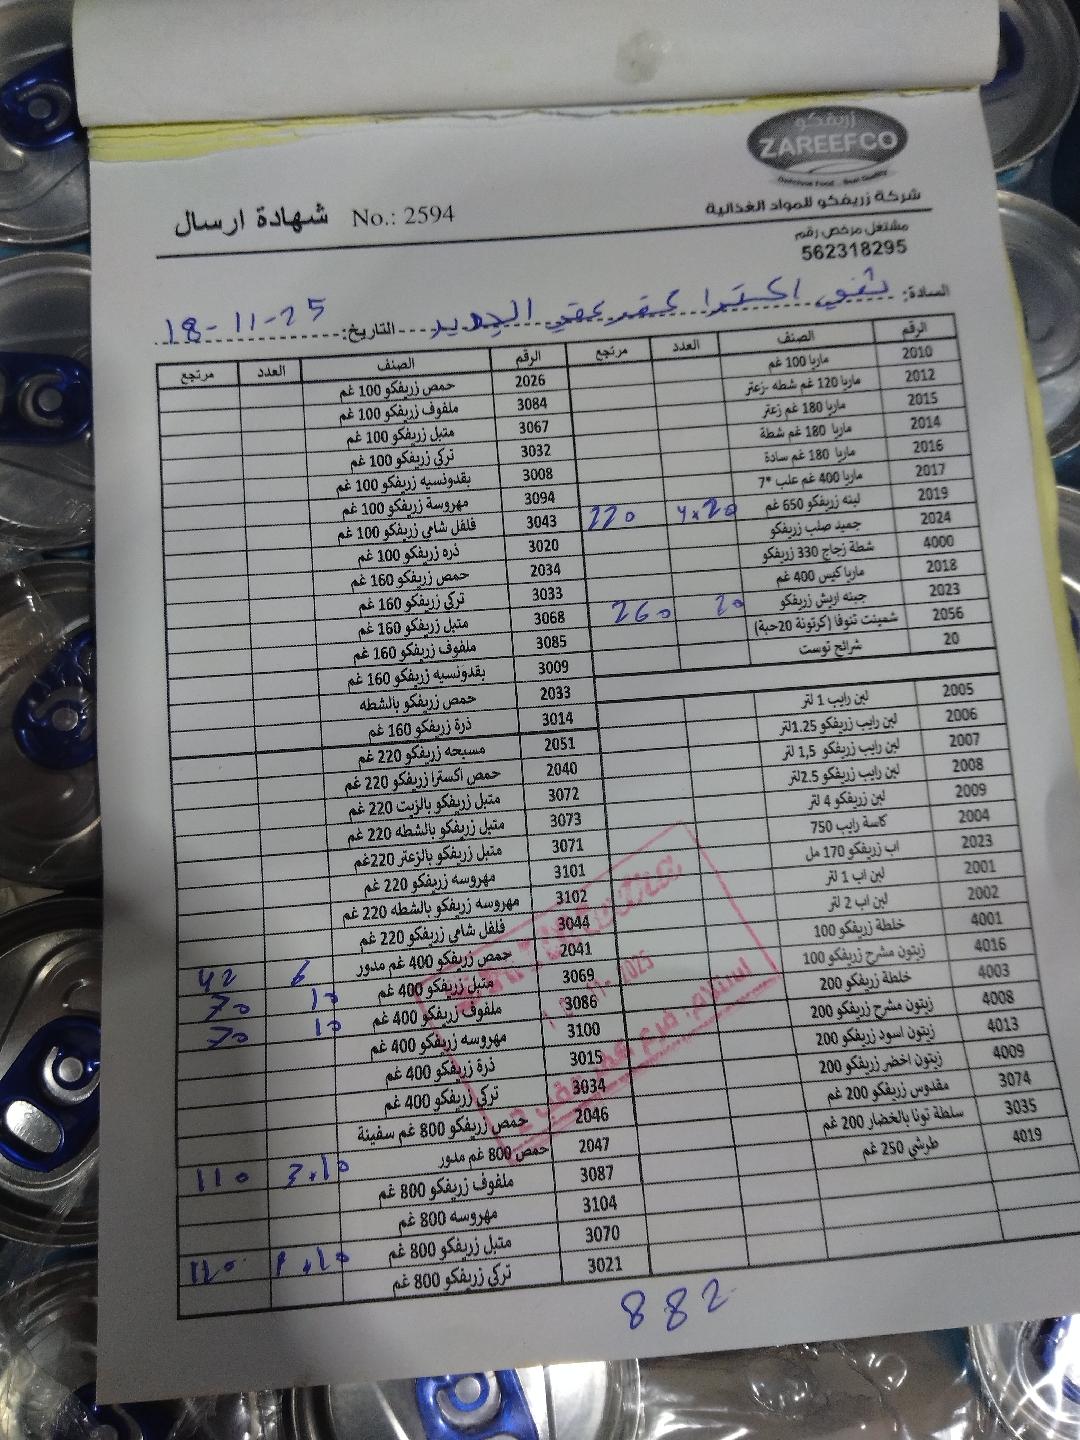 زريفكو
ZAREEFCO
شركة زريفكو للمواد الغذائية
شهادة ارسال No.: 2594
مشتغل مرخص رقم
562318295
السادة:
التاريخ: 18-11-25
الرقم الصنف العدد مرتجع
2010 ماريا 100 غم
2012 ماريا 120 غم شطه -زعتر
2015 ماريا 180 غم زعتر
2014 ماريا 180 غم شطة
2016 ماريا 180 غم سادة
2017 ماريا 400 غم علب *7
2019 لبنه زريفكو 650 غم 220
2024 جميد صلب زريفكو
4000 شطة زجاج 330 زريفكو
2018 ماريا كيس 400 غم
2023 جبنه اريش زريفكو 20 260
2056 شمينت تنوفا (كرتونة 20حبة)
20 شرائح توست
2005 لبن رايب 1 لتر
2006 لبن رايب زريفكو 1.25لتر
2007 لبن رايب زريفكو 1,5 لتر
2008 لبن رايب زريفكو 2.5لتر
2009 لبن زريفكو 4 لتر
2004 كاسة رايب 750
2023 اب زريفكو 170 مل
2001 لبن اب 1 لتر
2002 لبن اب 2 لتر
4001 خلطة زريفكو 100
4016 زيتون مشرح زريفكو 100
4003 خلطة زريفكو 200
4008 زيتون مشرح زريفكو 200
4013 زيتون اسود زريفكو 200
4009 زيتون اخضر زريفكو 200
3074 مقدوس زريفكو 200 غم
3035 سلطة تونا بالخضار 200 غم
4019 طرشي 250 غم
الرقم الصنف العدد مرتجع
2026 حمص زريفكو 100 غم
3084 ملفوف زريفكو 100 غم
3067 متبل زريفكو 100 غم
3032 تركي زريفكو 100 غم
3008 بقدونسيه زريفكو 100 غم
3094 مهروسة زريفكو 100 غم
3043 فلفل شامي زريفكو 100 غم
3020 ذره زريفكو 100 غم
2034 حمص زريفكو 160 غم
3033 تركي زريفكو 160 غم
3068 متبل زريفكو 160 غم
3085 ملفوف زريفكو 160 غم
3009 بقدونسيه زريفكو 160 غم
2033 حمص زريفكو بالشطه
3014 ذرة زريفكو 160 غم
2051 مسبحه زريفكو 220 غم
2040 حمص اكسترا زريفكو 220 غم
3072 متبل زريفكو بالزيت 220 غم
3073 متبل زريفكو بالشطه 220 غم
3071 متبل زريفكو بالزعتر 220غم
3101 مهروسه زريفكو 220 غم
3102 مهروسه زريفكو بالشطه 220 غم
3044 فلفل شامي زريفكو 220 غم
2041 حمص زريفكو 400 غم مدور 6 42
3069 متبل زريفكو 400 غم 10 70
3086 ملفوف زريفكو 400 غم 10 70
3100 مهروسه زريفكو 400 غم
3015 ذرة زريفكو 400 غم
3034 تركي زريفكو 400 غم
2046 حمص زريفكو 800 غم سفينة
2047 حمص 800 غم مدور 110
3087 ملفوف زريفكو 800 غم
3104 مهروسه 800 غم
3070 متبل زريفكو 800 غم
3021 تركي زريفكو 800 غم
882